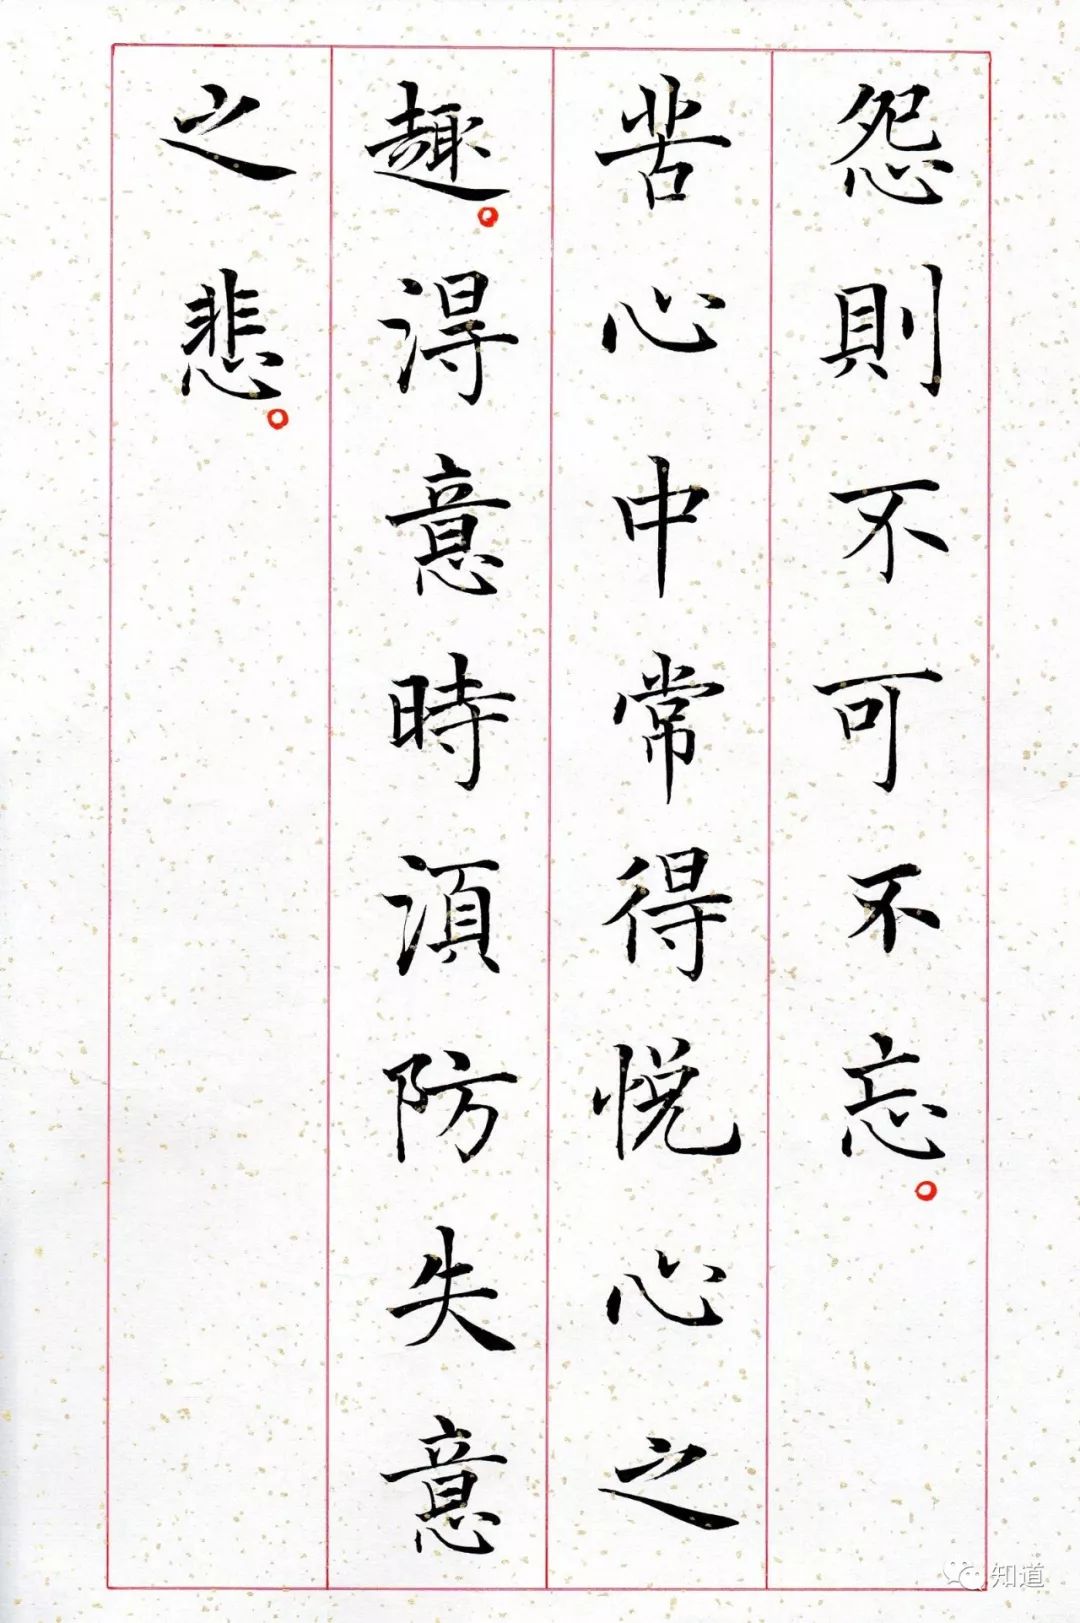 怨則不可不忘。
苦心中常得悅心之
趣。淂意時湏防失意
之悲。
知道